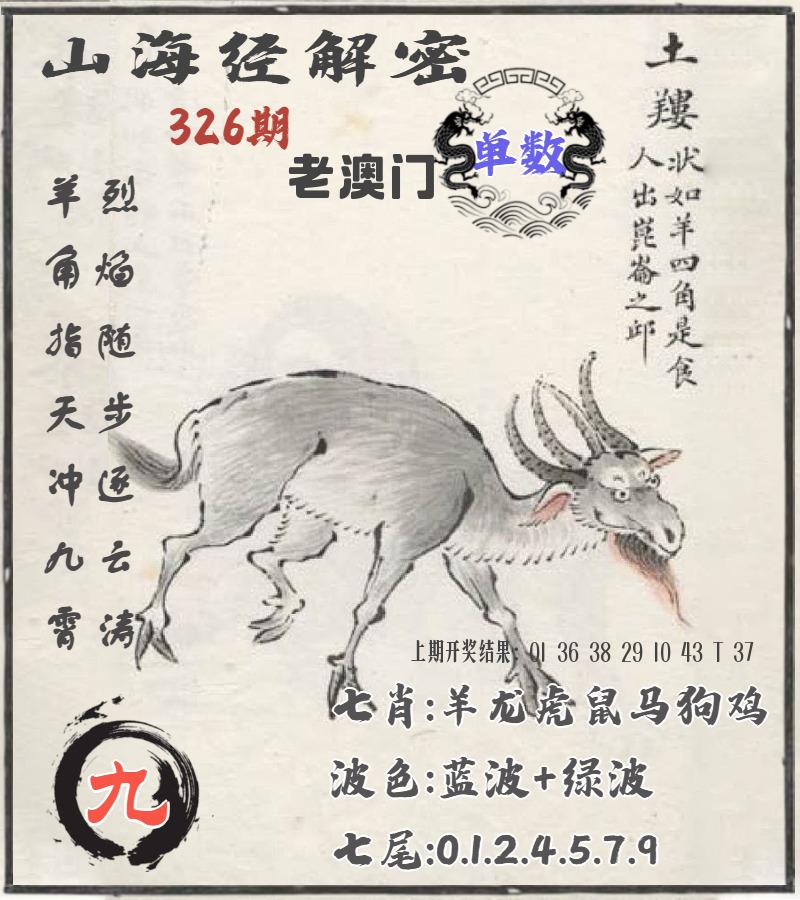 山海经解密
326期
老澳门
单数
土
羬
状如羊四角是食
人出崑崙之邱
羊角指天冲九霄
烈焰随步逐云涛
上期开奖结果: 01 36 38 29 10 43 T 37
七肖:羊龙虎鼠马狗鸡
波色:蓝波+绿波
七尾:0.1.2.4.5.7.9
九